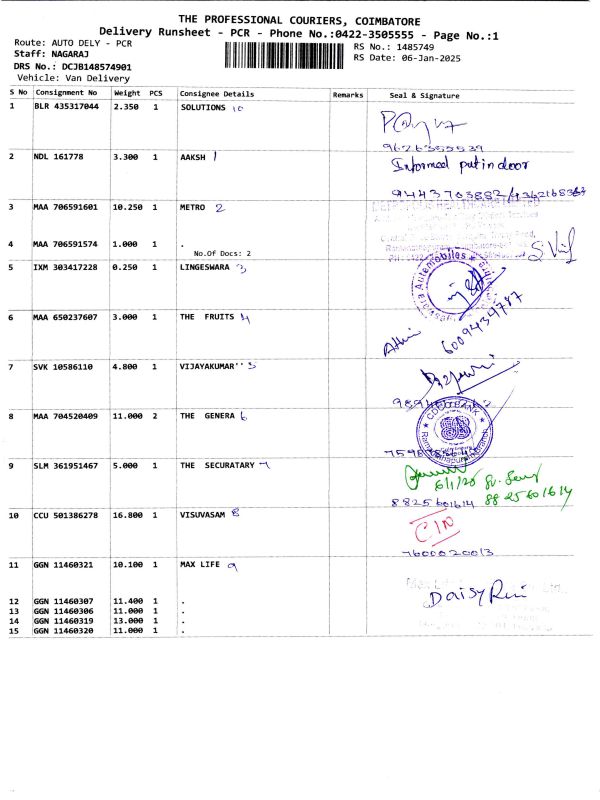 THE PROFESSIONAL COURIERS, COIMBATORE
Delivery Runsheet - PCR - Phone No.:0422-3505555 - Page No.:1
Route: AUTO DELY - PCR
RS No.: 1485749
Staff: NAGARAJ
RS Date: 06-Jan-2025
DRS No.: DCJB148574901
Vehicle: Van Delivery
S No Consignment No Weight PCS Consignee Details Remarks Seal & Signature
1 BLR 435317044 2.350 1 SOLUTIONS 10
9626355539
2 NDL 161778 3.300 1 AAKSH 1 Informed put in door
9443703882/
3 MAA 706591601 10.250 1 METRO 2
4 MAA 706591574 1.000 1 .
No.Of Docs: 2
5 IXM 303417228 0.250 1 LINGESWARA 3
Automobiles
6 MAA 650237607 3.000 1 THE FRUITS 4
6009434787
7 SVK 10586110 4.800 1 VIJAYAKUMAR'' 5
8 MAA 704520409 11.000 2 THE GENERA 6
BANK
9 SLM 361951467 5.000 1 THE SECURATARY 7
6/1/25
8825601614
8825601614
10 CCU 501386278 16.800 1 VISUVASAM 8
CIN
7600020013
11 GGN 11460321 10.100 1 MAX LIFE 9
Daisy Rani
12 GGN 11460307 11.400 1 .
13 GGN 11460306 11.000 1 .
14 GGN 11460319 13.000 1 .
15 GGN 11460320 11.000 1 .